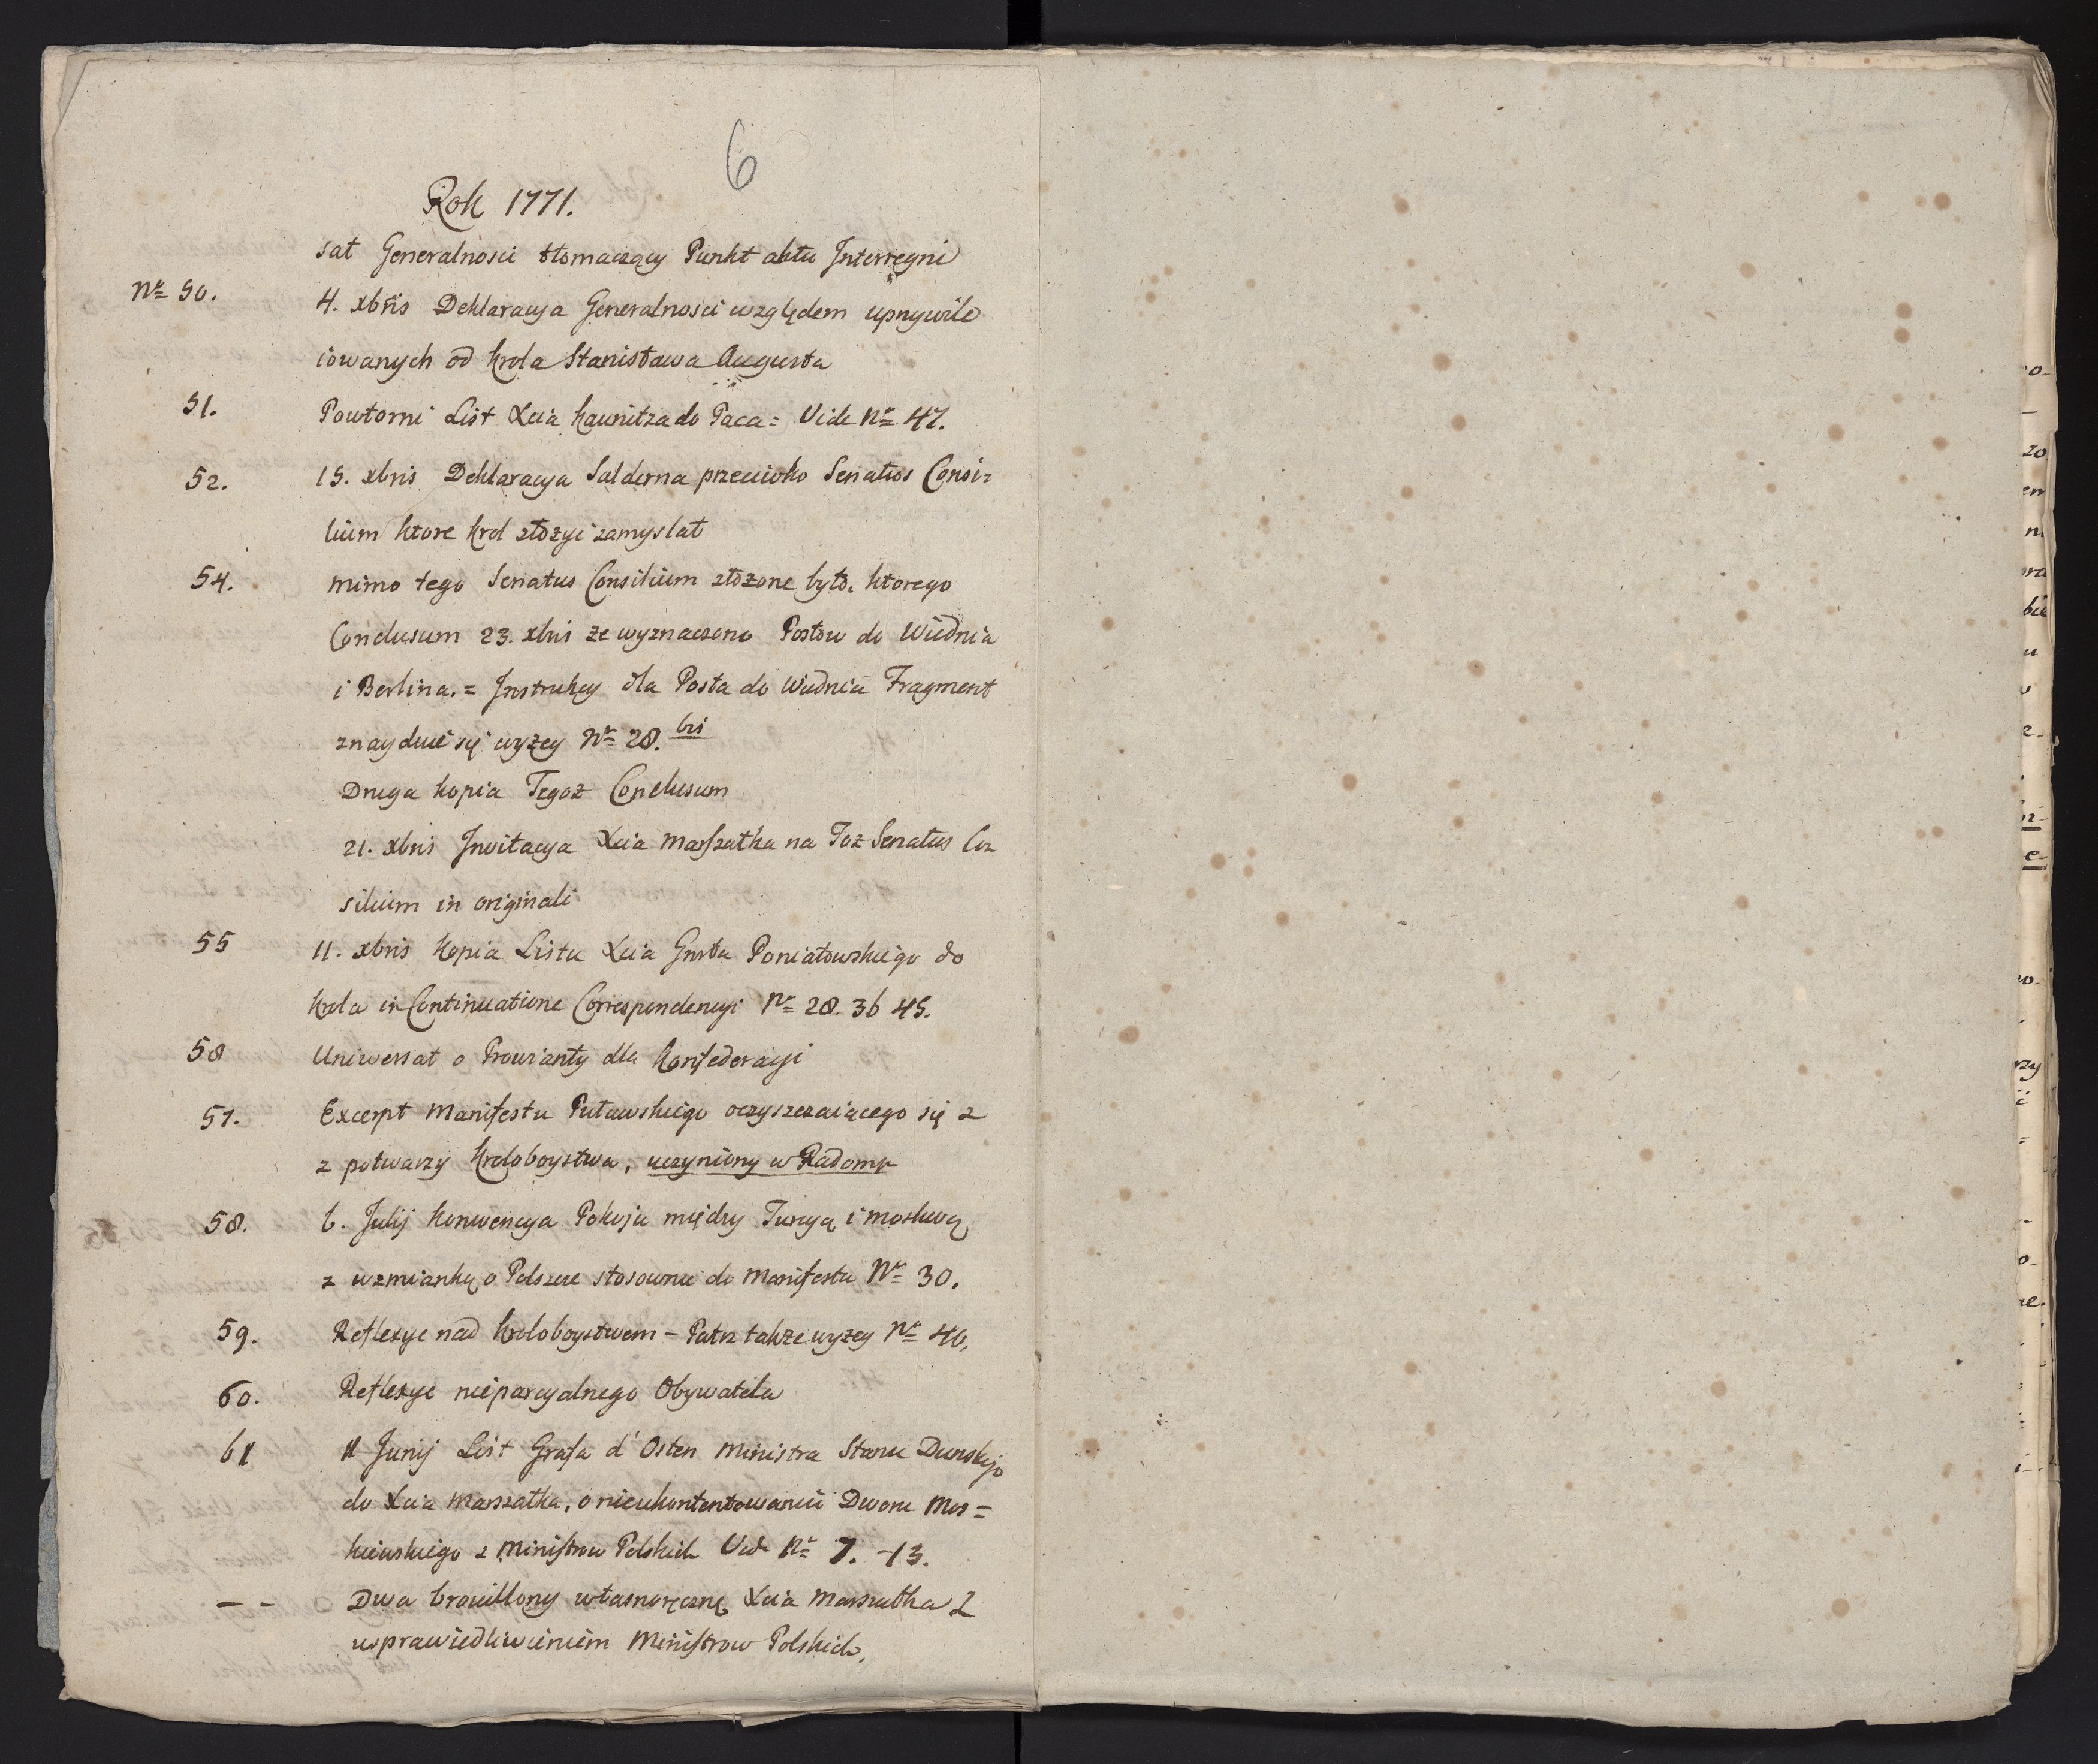 6
Rok 1771.
sał Generalnosci tłomaczący Punkt aktu Interregni
Nr= 50. 4. xbris Deklaracya Generalnosci względem uprzywile
iowanych od Krola Stanisława Augusta
51. Powtorni List Xcia Kaunitza do Paca = Vide Nr= 47.
52. 15. xbris Deklaracya Salderna przeciwko Senatus Consi=
lium ktore Krol złożyć zamyslał
54. mimo tego Senatus Consilium złożone było, ktorego
Conclusum 23. xbris że wyznaczono Posłow do Wiednia
i Berlina. = Instrukcy dla Posła do Wiednia Fragment
znayduie się wyżey Nr= 28. bis
Druga kopia Tegoż Conclusum
21. xbris Invitacya Xcia Marszałka na Toż Senatus Con
silium in originali
55 11. xbris Kopia Listu Xcia Poniatowskiego do
Krola in Continuatione Correspondencyi Nr= 28. 36 45.
58 Uniwersał o Prowianty dla Konfederacyi
57. Excerpt Manifestu Puławskiego oczyszczaiącego się z
z potwarzy Kroloboystwa, uczyniony w Radomu
58. 6. Julij Konwencya Pokoju między Turcyą i Moskwą
z wzmianką o Polszcze stosownie do Manifestu Nr= 30.
59. Reflexye nad Kroloboystwem – Patrz także wyżey Nr= 46.
60. Reflexye nieparcyalnego Obywatela
61 Junij List Grafa d'Osten Ministra Stanu Dunskigo
do Xcia Marszałka, o nieukontentowaniu Dworu Mos=
kiewskiego z Ministrow Polskich Vid Nr= 7. -13.
– – Dwa brouillony własnoręczne Xcia Marszałka Z
usprawiedliwieniem Ministrow Polskich.